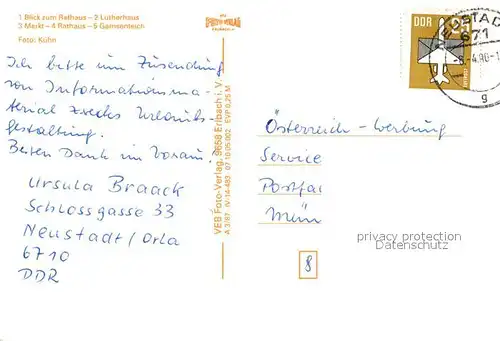 1 Blick zum Rathaus – 2 Lutherhaus
3 Markt – 4 Rathaus – 5 Gamsenteich
Foto: Kühn
VERLAG
DDR
25
NEUSTADT
671
-4.90-1
g
Ich bitte um Zusendung
von Informationsma-
terial zwecks Urlaubs-
gestaltung.
Besten Dank im Voraus!
Ursula Braack
Schlossgasse 33
Neustadt/Orla
6710
DDR
VEB Foto-Verlag, 9658 Erlbach i. V.
A 3/87 IV-14-483 07 10 05 002 EVP 0,25 M
Österreich-Werbung
Service
Postfa
Mün
privacy protection
Datenschutz
8